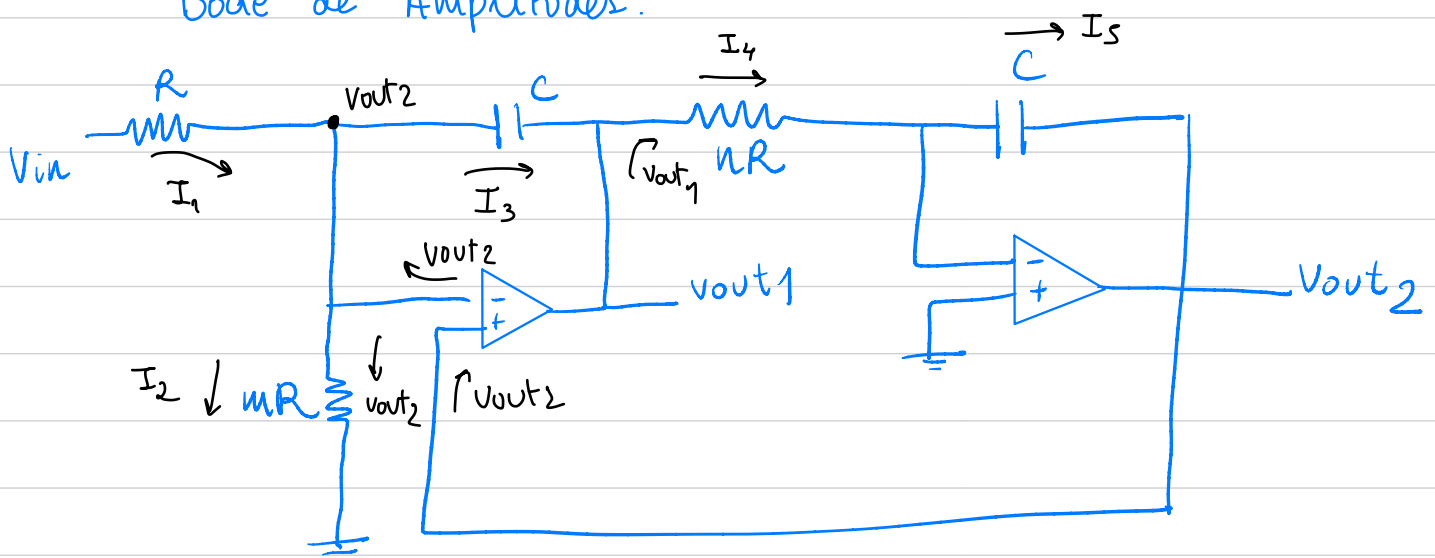 Bode de Amplitudes.
I4
I5
R
Vout2
C
C
Vin
I1
I3
Vout1
nR
Vout2
-
+
Vout1
-
+
Vout2
I2
mR
Vout2
Vout2